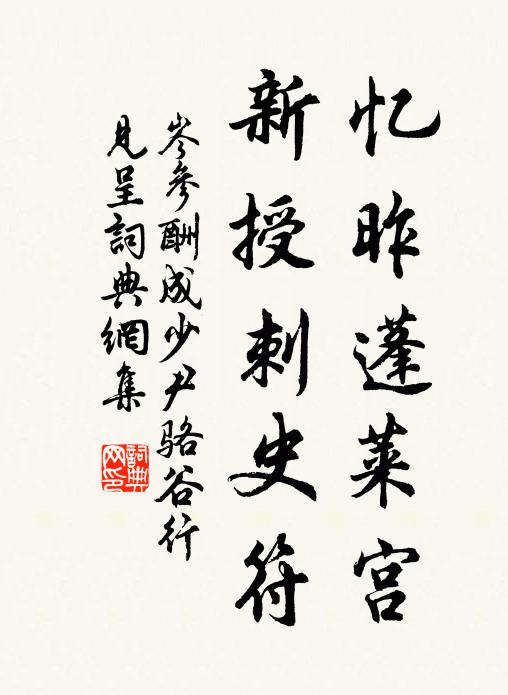 忆昨蓬莱宫
新授刺史符
岑参酬成少尹骆谷行
见呈詞典網集
詞典网印